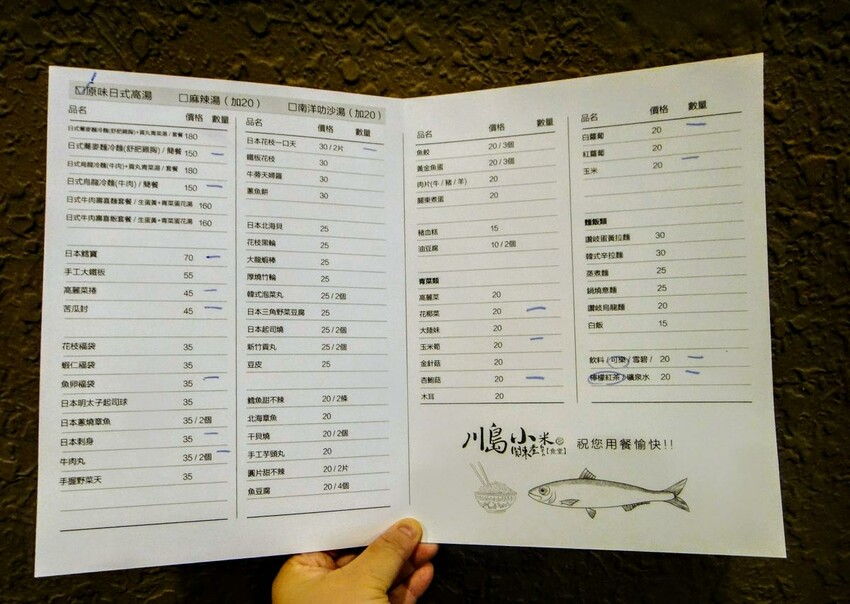 ☑原味日式高湯 □麻辣湯（加20） □南洋叻沙湯（加20）
品名 價格 數量
日式蕎麥麵冷麵(舒肥雞胸)+貢丸青菜湯/套餐 180
日式蕎麥麵冷麵(舒肥雞胸)/簡餐 150
日式烏龍冷麵(牛肉)+貢丸青菜湯/套餐 180
日式烏龍冷麵(牛肉)/簡餐 150
日式牛肉壽喜麵套餐/生蛋黃+青菜蛋花湯 160
日式牛肉壽喜飯套餐/生蛋黃+青菜蛋花湯 160
日本鱈寶 70
手工大鐵板 55
高麗菜捲 45
苦瓜封 45
花枝福袋 35
蝦仁福袋 35
魚卵福袋 35
日本明太子起司球 35
日本蔥燒章魚 35/2個
日本刺身 35
牛肉丸 35/2個
手握野菜天 35
品名 價格 數量
日本花枝一口天 30/2片
鐵板花枝 30
牛蒡天婦羅 30
蔥魚餅 30
日本北海貝 25
花枝黑輪 25
大龍蝦棒 25
厚燒竹輪 25
韓式泡菜丸 25/2個
日本三角野菜豆腐 25
日本起司燒 25/2個
新竹貢丸 25/2個
豆皮 25
鱈魚甜不辣 20/2條
北海章魚 20
干貝燒 20/2個
手工芋頭丸 20
圓片甜不辣 20/2片
魚豆腐 20/4個
品名 價格 數量
魚餃 20/3個
黃金魚蛋 20/3個
肉片(牛/豬/羊) 20
關東煮蛋 20
豬血糕 15
油豆腐 10/2個
青菜類
高麗菜 20
花椰菜 20
大陸妹 20
玉米筍 20
金針菇 20
杏鮑菇 20
木耳 20
品名 價格 數量
白蘿蔔 20
紅蘿蔔 20
玉米 20
麵飯類
讚岐蛋黃拉麵 30
韓式辛拉麵 30
蒸煮麵 25
鍋燒意麵 25
讚岐烏龍麵 20
白飯 15
飲料/可樂/雪碧/ 20
檸檬紅茶/礦泉水 20
川島小米
【食堂】
祝您用餐愉快!!